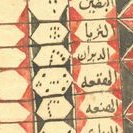 البطين
الثريا
الدبران
الهقعه
الهنعه